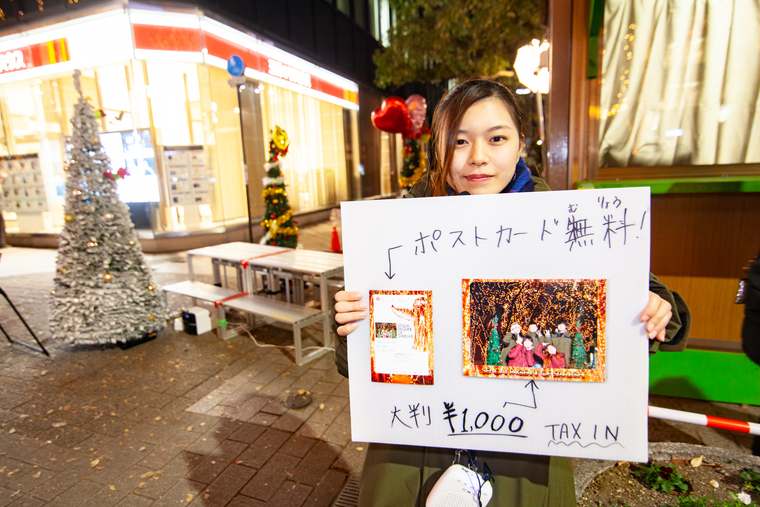 むりょう
ポストカード無料!
大判 ¥1,000 TAX IN